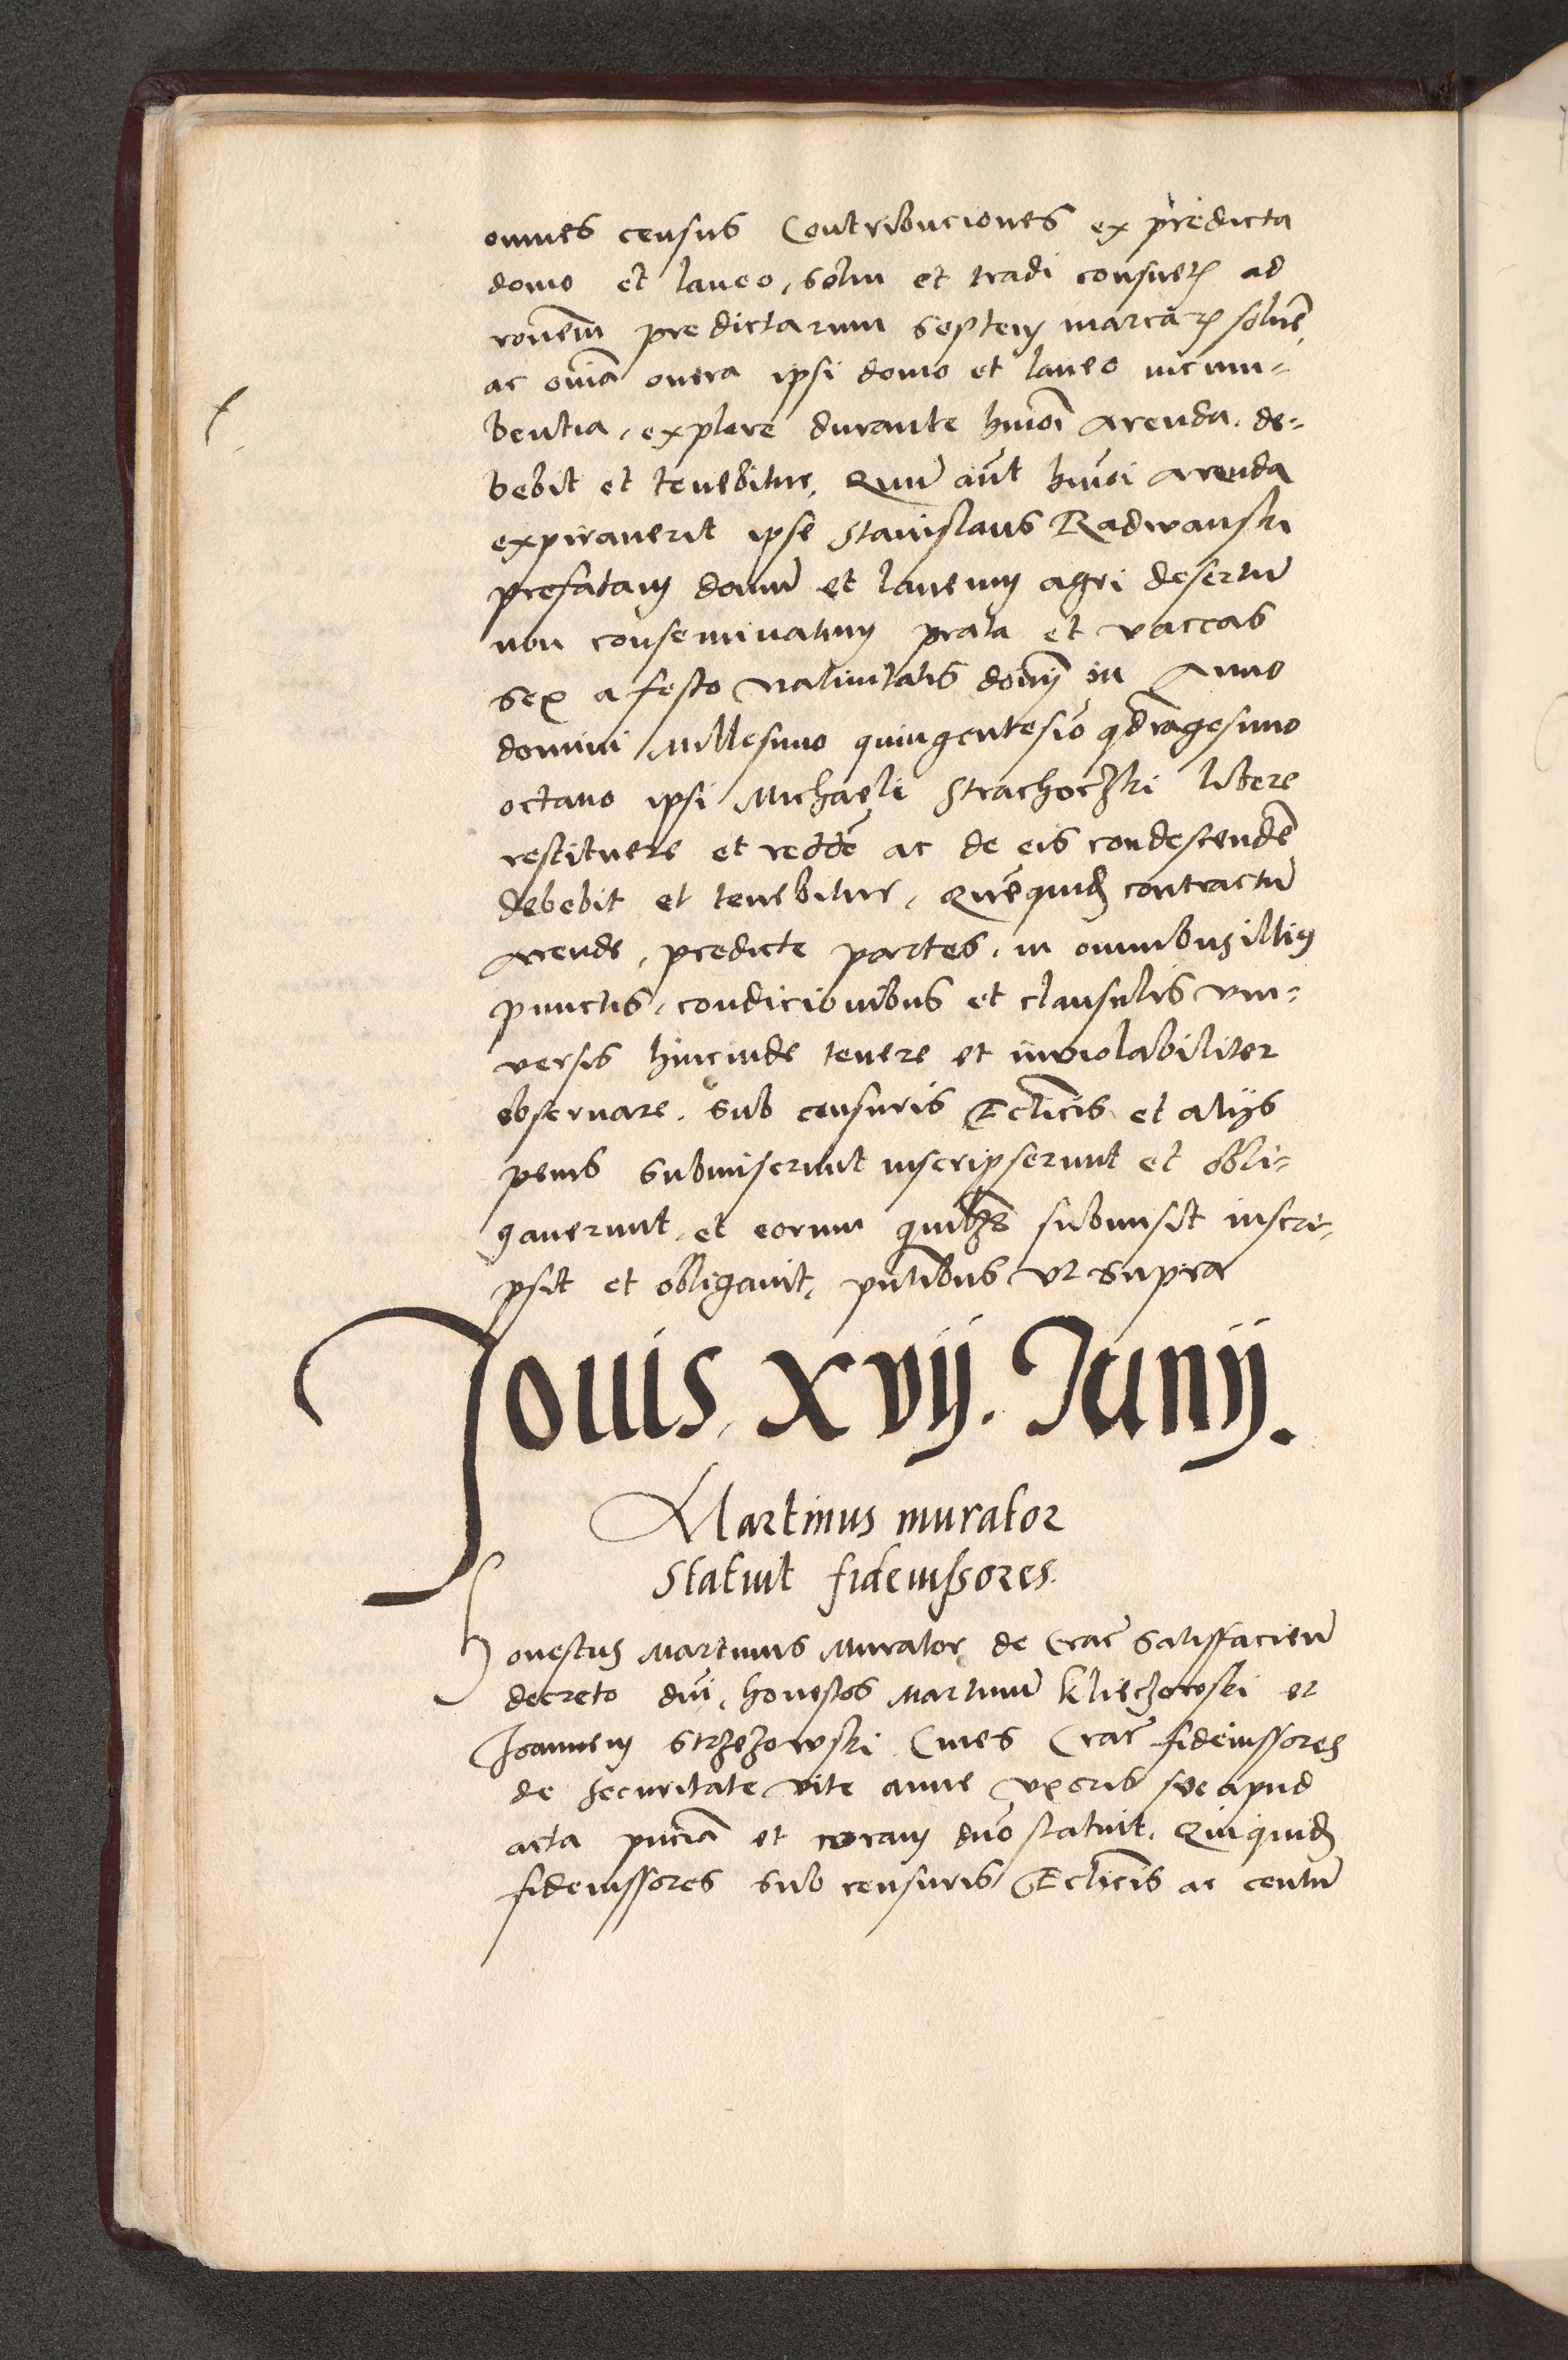 omnes census Contribuciones ex predicta
domo et laneo, solui et tradi consuetꝫ ad
ronem̄ predictarum septem marcarꝫ soluē
ac om̄ia onera ipsi domo et laneo incum-
bentia, explere durante hmōi arenda, de-
bebit et tenebitur, Qum̄ aūt hmōi arenda
expirauerit ipse Stanislaus Radwanski
prefatam domū et laneum agri desertū
non conseminatum prata et vaccas
sex a festo natiuitatis domī in Anno
domini Millesimo quingentesiō qdragesimo
octauo ipsi Michaeli Strachoczki libere
restituere et reddē ac de eis condescendē
debebit et tenebitur, Quēquidꝫ contractū
arende, predicte partes, in omnibus illius
punctis, condicionibus et clausulis vni-
versis hincinde tenere et inviolabiliter
obseruare, sub censuris Ecclicis et alijs
penis submiserunt inscripserunt et obli-
gauerunt, et eorum quilibꝫ submisit inscri-
psit et obligauit, pntibus vt supra
Jouis, xvij. Junij.
Martinus murator
Statuit fideiussores.
Honestus Martinus Murator de Crac̄ satisfaciēn
decreto dni, honestos Martinū Kliechowski et
Joannem Strzezowski Ciues Crac̄ fideiussores
de securitate vite anne vxoris sue apud
acta pn̄cia et coram dn̄o statuit, Quiquidꝫ
fideiussores sub censuris Ecclicis ac centū